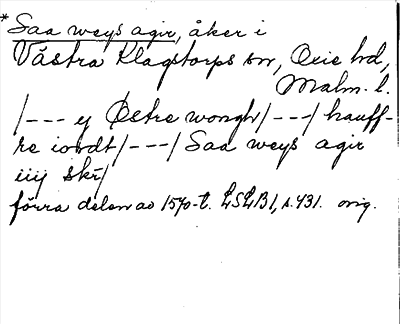 *Saa weys agir, åker i
Västra Klagstorps sn, Oxie hd,
Malm. l.
/--- ey Østre wongh/---/ hauff-
re iordt/---/ Saa weys agir
iiij skr/
förra delen av 1570-t. LSLB1, s. 431. orig.